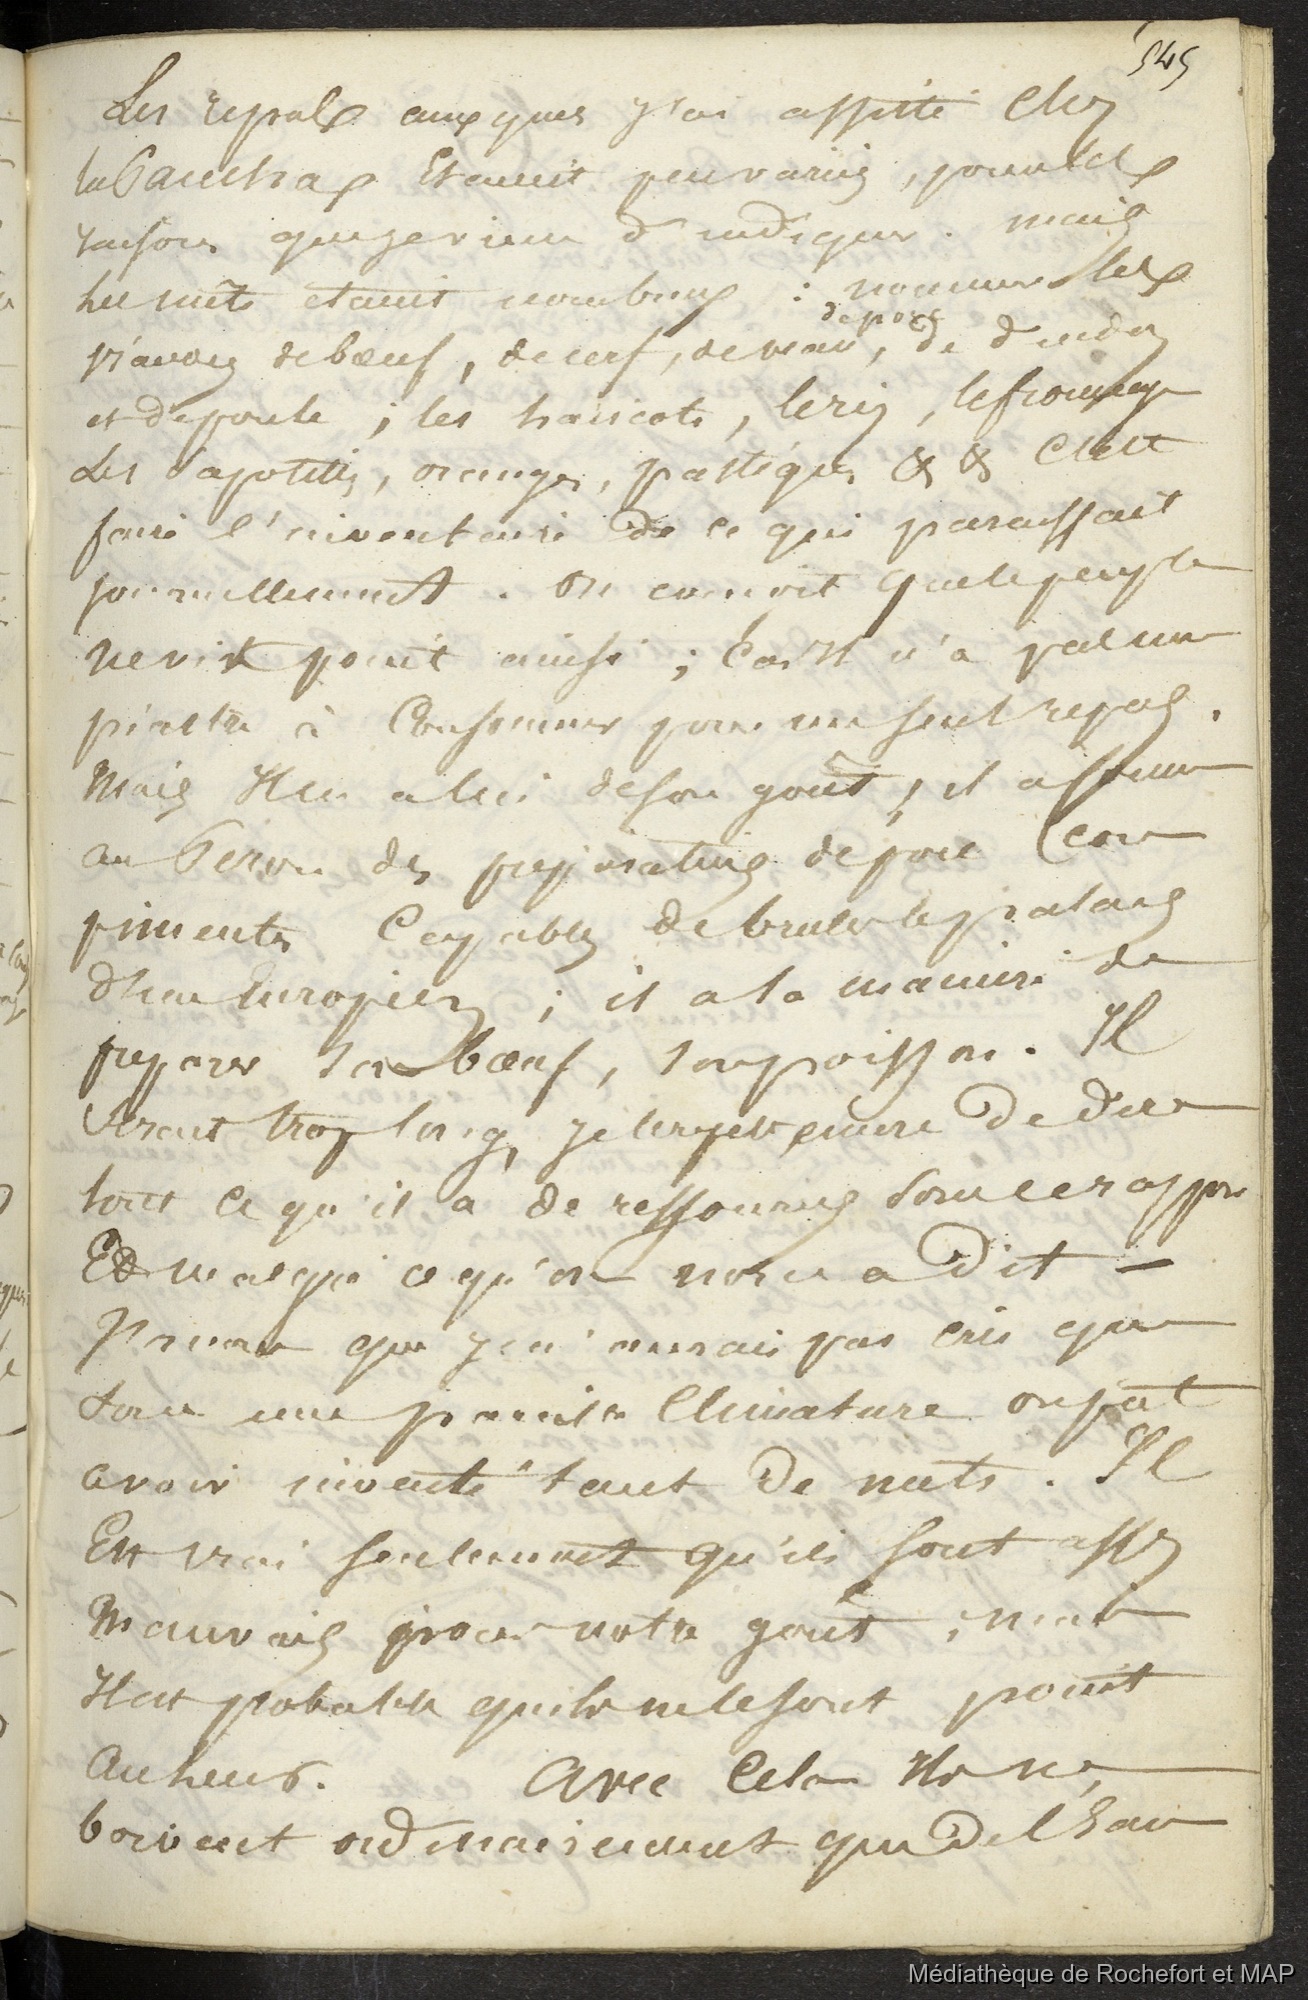 545
Les repas auxquels j'ai assisté chez
la Sancha etaient peu variés, pour les
raisons que je viens d'indiquer. Mais
les mets etaient nombreux : nommer les
de porc
piavdes de bœuf, de cerf, de veau, de dindes
et de poule ; les haricots, le riz, le fromage
Les sapotilles, oranges, pasteques &c &c C'est
faire l'inventaire de ce qui paraissait
journellement. On conçoit que le peuple
ne vit point ainsi ; Car il n'a pas une
piastre à Consommer pour un seul repas.
Mais il en a lui de son goût ; il assaisonne
au des preparations de porc
piments Capables de bruler le palais
d'un Européen ; il a la maniere de
preparer son bœuf, son poisson. Il
serait trop long, je le repete encore De dire
tout ce qu'il a de ressources sous ce rapport
Et malgré ce qu'on nous en a Dit —
J'avoue que je n'aurais pas cru que
sous une pareille Climature on put
avoir inventé tant De mets. Il
Est vrai seulement qu'ils sont assez
Mauvais pour notre goût ; mais
Il est probable qu'ils ne le sont point
Au leur. Avec Cela Ils ne
boivent ordinairement que De l'Eau
Médiathèque de Rochefort et MAP